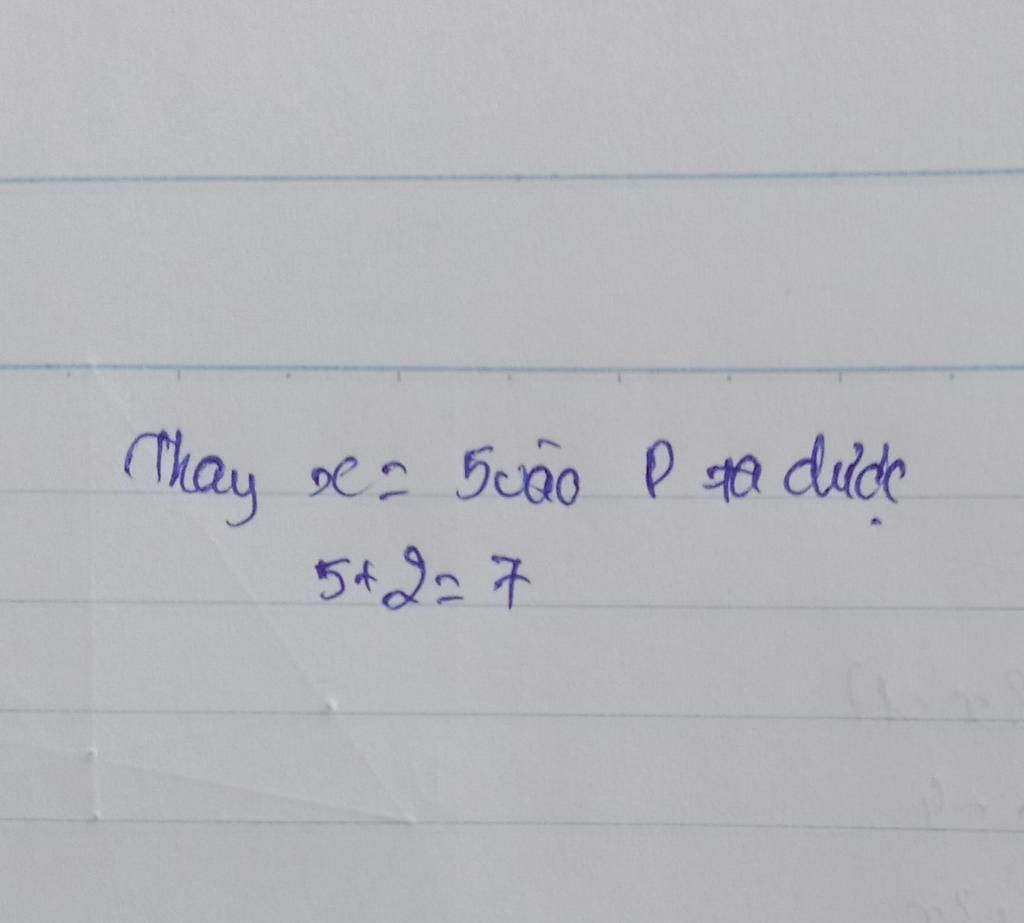 Thay x = 5 vào P ta được
5 + 2 = 7